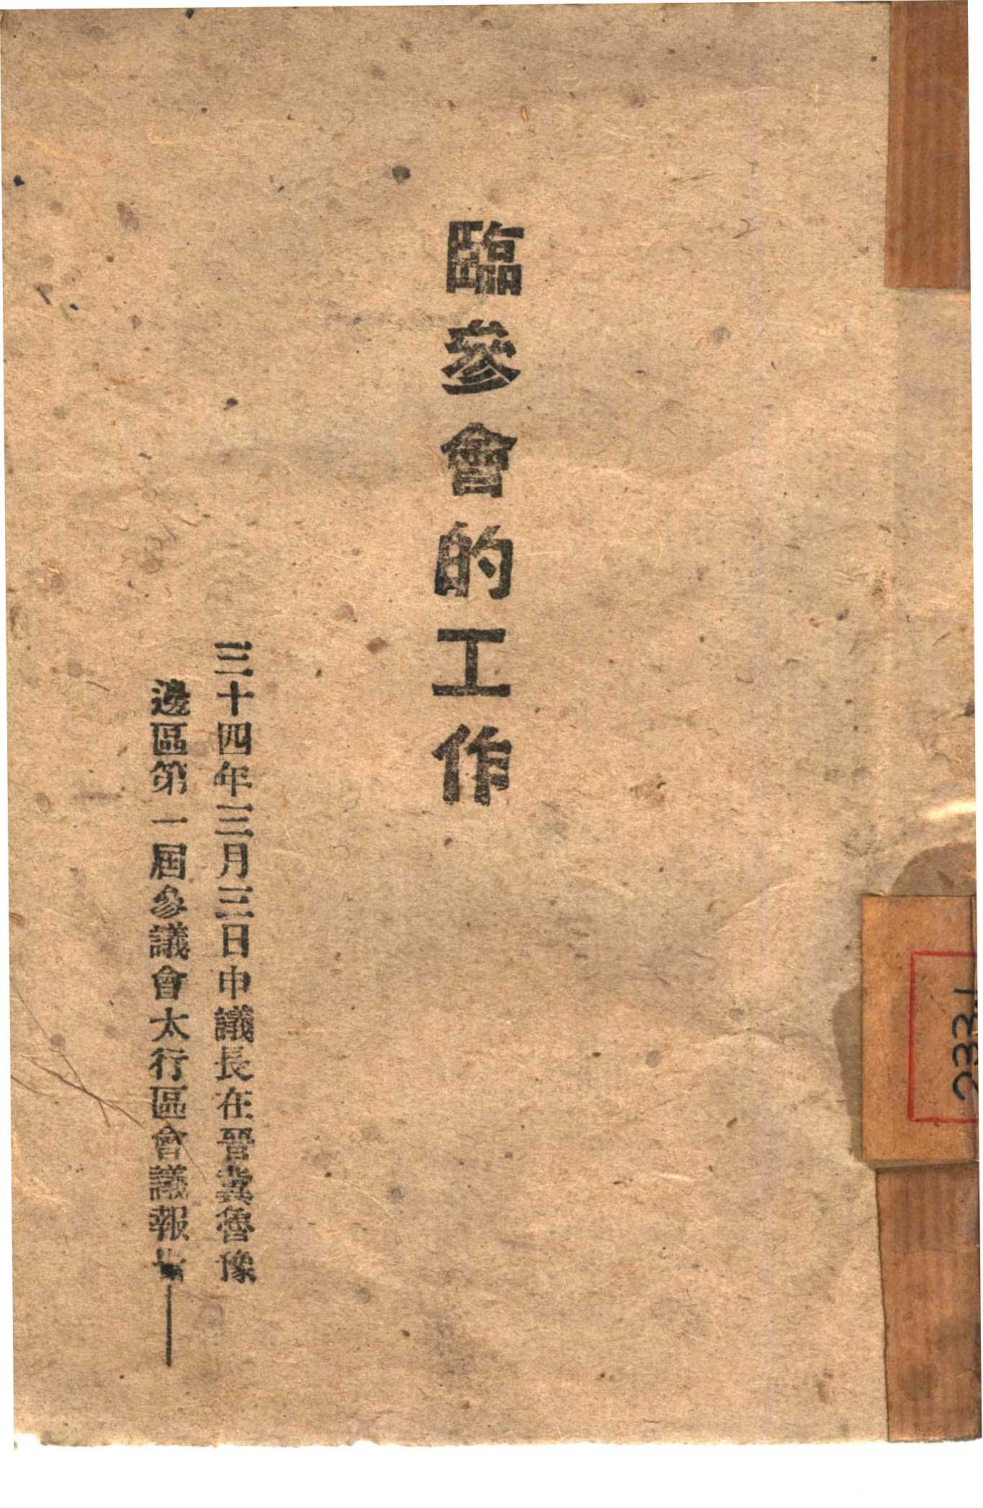 臨參會的工作
三十四年三月三日申議長在晉冀魯豫
邊區第一屆參議會太行區會議報告——
2331